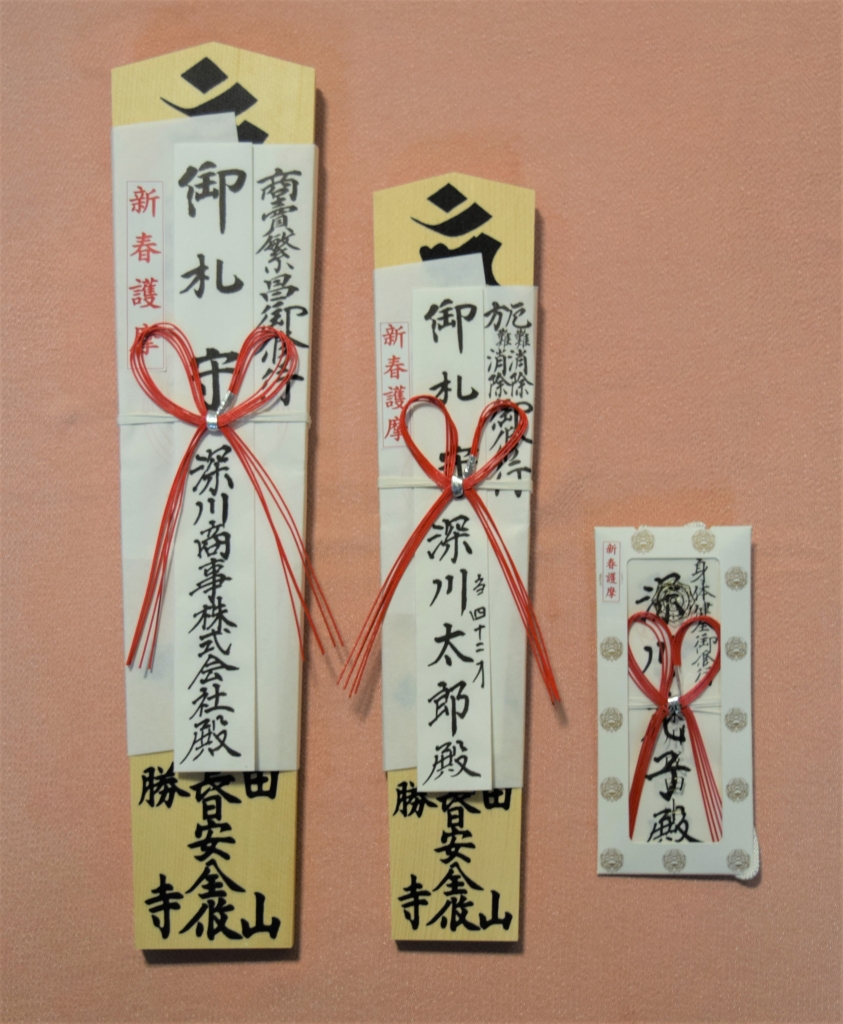 商賣繁昌御修行
御札
守
深川商事株式会社殿
新春護摩
田
山
安全
勝
寺
厄難消除
方難消除
御修行
御札
守
深川太郎殿
当四十二才
新春護摩
田
山
安全
勝
寺
身体健全御修行
深川
子殿
新春護摩